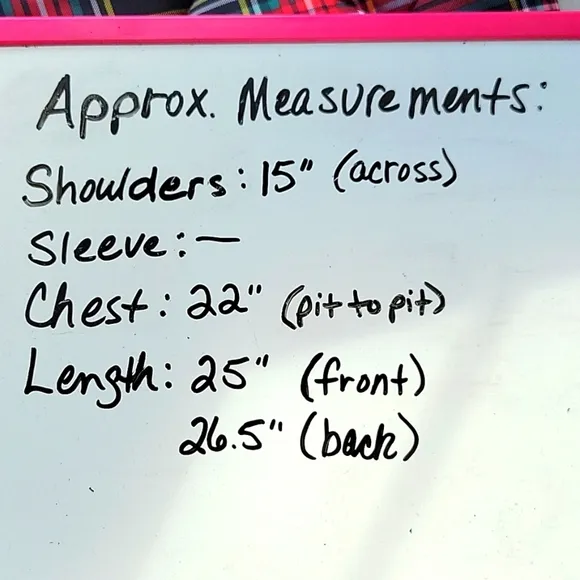 Approx. Measurements:
Shoulders: 15" (across)
Sleeve: —
Chest: 22" (pit to pit)
Length: 25" (front)
26.5" (back)